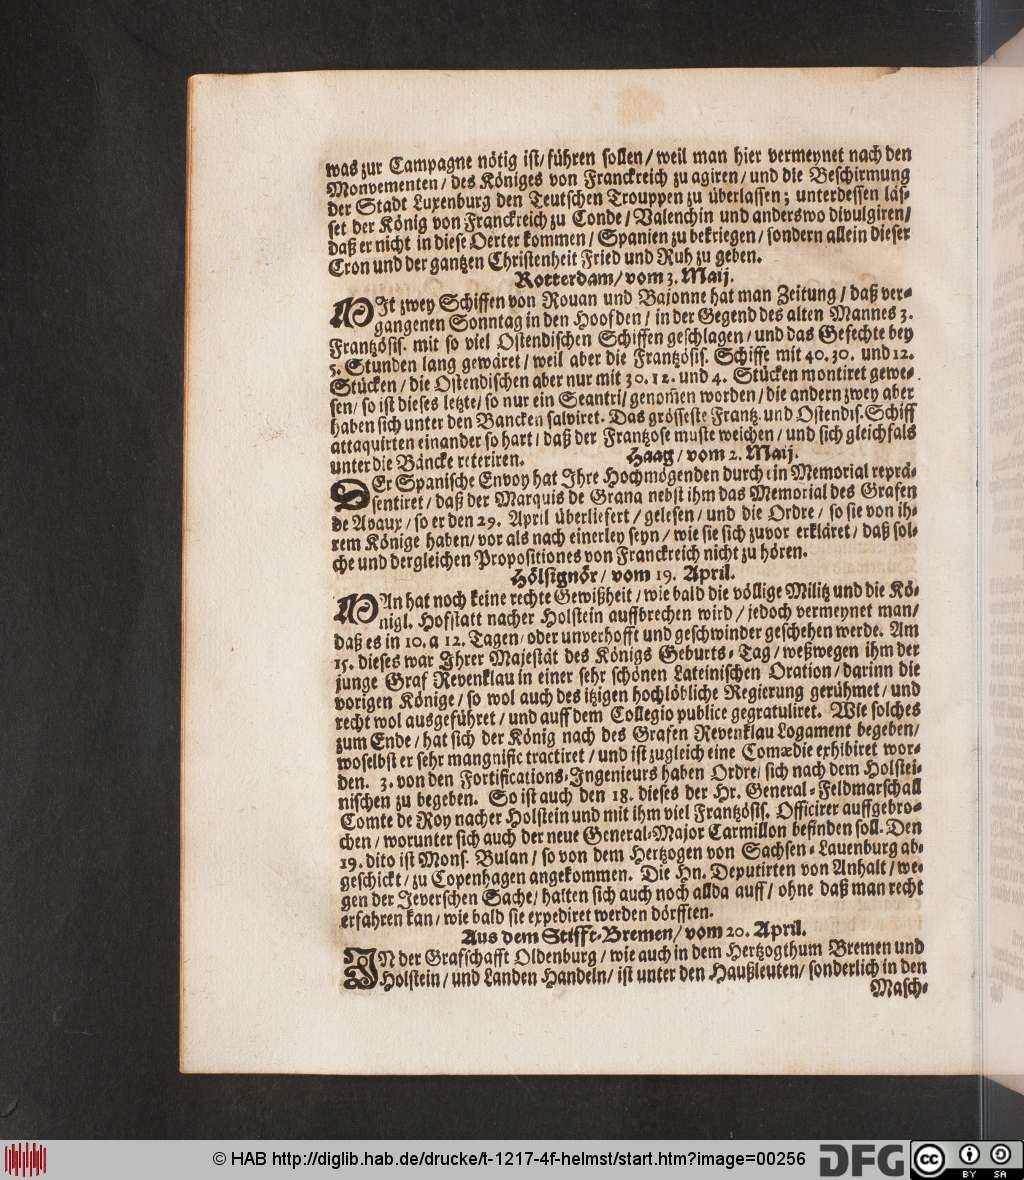 was zur Campagne nötig ist/ führen sollen/ weil man hier vermeynet nach den
Monvementen/ des Königes von Franckreich zu agiren/ und die Beschirmung
der Stadt Luxenburg den Teutschen Trouppen zu überlassen; unterdessen läs-
set der König von Franckreich zu Conde/ Valenchin und anderswo divulgiren/
daß er nicht in diese Oerter kommen/ Spanien zu bekriegen/ sondern allein dieser
Cron und der gantzen Christenheit Fried und Ruh zu geben.
Rotterdam/ vom 3. Maij.
MIt zwey Schiffen von Rouan und Bajonne hat man Zeitung/ daß ver-
gangenen Sonntag in den Hoofden/ in der Gegend des alten Mannes 3.
Frantzösis. mit so viel Ostendischen Schiffen geschlagen/ und das Gefechte bey
5. Stunden lang gewäret/ weil aber die Frantzösis. Schiffe mit 40. 30. und 12.
Stücken/ die Ostendischen aber nur mit 30. 12. und 4. Stücken montiret gewe-
sen/ so ist dieses letzte/ so nur ein Seantri/ genom̃en worden/ die andern zwey aber
haben sich unter den Bancken salviret. Das grösseste Frantz. und Ostendis. Schiff
attaquirten einander so hart/ daß der Frantzose muste weichen/ und sich gleichfals
unter die Bäncke reteriren. Haag/ vom 2. Maij.
DEr Spanische Envoy hat Ihre Hochmögenden durch ein Memorial reprä-
sentiret/ daß der Marquis de Grana nebst ihm das Memorial des Grafen
de Avaux/ so er den 29. April überliefert/ gelesen/ und die Ordre/ so sie von ih-
rem Könige haben/ vor als nach einerley seyn/ wie sie sich zuvor erkläret/ daß sol-
che und dergleichen Propositiones von Franckreich nicht zu hören.
Hölsignör/ vom 19. April.
MAn hat noch keine rechte Gewißheit/ wie bald die völlige Militz und die Kö-
nigl. Hofstatt nacher Holstein auffbrechen wird/ jedoch vermeynet man/
daß es in 10. a 12. Tagen/ oder unverhofft und geschwinder geschehen werde. Am
15. dieses war Ihrer Majestät des Königs Geburts-Tag/ weßwegen ihm der
junge Graf Revenklau in einer sehr schönen Lateinischen Oration/ darinn die
vorigen Könige/ so wol auch des itzigen hochlöbliche Regierung gerühmet/ und
recht wol ausgeführet/ und auff dem Collegio publice gegratuliret. Wie solches
zum Ende/ hat sich der König nach des Grafen Revenklau Logament begeben/
woselbst er sehr mangnific tractiret/ und ist zugleich eine Comædie exhibiret wor-
den. 3. von den Fortifications-Ingenieurs haben Ordre/ sich nach dem Holstei-
nischen zu begeben. So ist auch den 18. dieses der Hr. General-Feldmarschall
Comte de Roy nacher Holstein und mit ihm viel Frantzösis. Officirer auffgebro-
chen/ worunter sich auch der neue General-Major Carmillon befinden soll. Den
19. dito ist Mons. Bulan/ so von dem Hertzogen von Sachsen-Lauenburg ab-
geschickt/ zu Copenhagen angekommen. Die Hn. Deputirten von Anhalt/ we-
gen der Jeverschen Sache/ halten sich auch noch allda auff/ ohne daß man recht
erfahren kan/ wie bald sie expediret werden dörfften.
Aus dem Stifft-Bremen/ vom 20. April.
IN der Grafschafft Oldenburg/ wie auch in dem Hertzogthum Bremen und
Holstein/ und Landen Handeln/ ist unter den Haußleuten/ sonderlich in den
Masch-
© HAB http://diglib.hab.de/drucke/t-1217-4f-helmst/start.htm?image=00256
DFG
cc BY SA